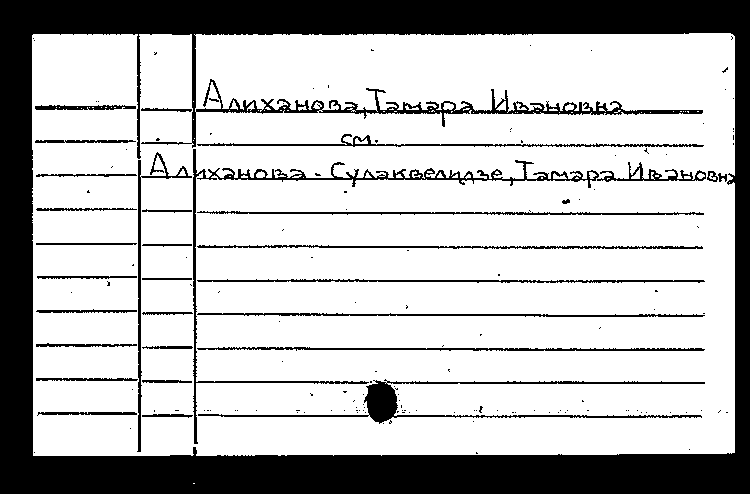 Алиханова, Тамара Ивановна
см.
Алиханова - Сулаквелидзе, Тамара Ивановна